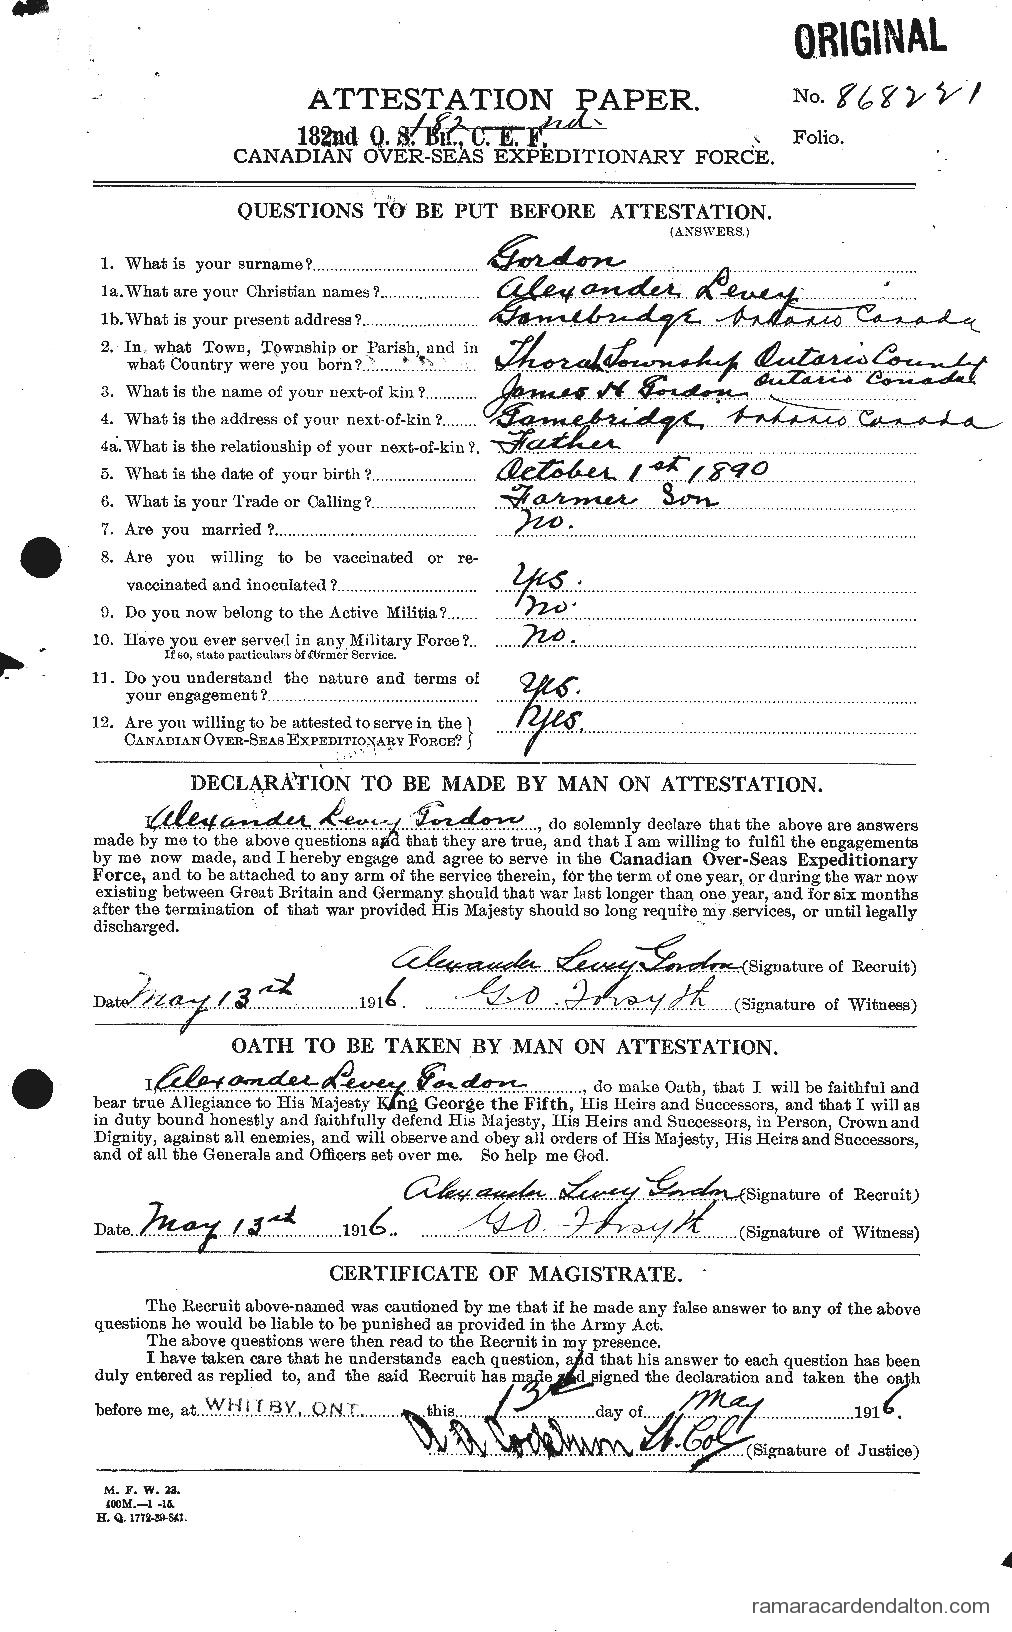 ORIGINAL
ATTESTATION PAPER.
No. 868221
182nd
182nd O. S. Bn., C. E. F.
Folio.
CANADIAN OVER-SEAS EXPEDITIONARY FORCE.
QUESTIONS TO BE PUT BEFORE ATTESTATION.
(ANSWERS.)
1. What is your surname? Gordon
1a. What are your Christian names? Alexander Levey
1b. What is your present address? Gamebridge Ontario Canada
2. In what Town, Township or Parish, and in
what Country were you born? Thorah Township Ontario County
Ontario Canada
3. What is the name of your next-of kin? James H Gordon
4. What is the address of your next-of-kin? Gamebridge Ontario Canada
4a. What is the relationship of your next-of-kin? Father
5. What is the date of your birth? October 1st 1890
6. What is your Trade or Calling? Farmer Son
7. Are you married? no.
8. Are you willing to be vaccinated or re-
vaccinated and inoculated? Yes.
9. Do you now belong to the Active Militia? no.
10. Have you ever served in any Military Force? no.
If so, state particulars of former Service.
11. Do you understand the nature and terms of
your engagement? Yes.
12. Are you willing to be attested to serve in the
CANADIAN OVER-SEAS EXPEDITIONARY FORCE? } Yes.
DECLARATION TO BE MADE BY MAN ON ATTESTATION.
I, Alexander Levey Gordon, do solemnly declare that the above are answers
made by me to the above questions and that they are true, and that I am willing to fulfil the engagements
by me now made, and I hereby engage and agree to serve in the Canadian Over-Seas Expeditionary
Force, and to be attached to any arm of the service therein, for the term of one year, or during the war now
existing between Great Britain and Germany should that war last longer than one year, and for six months
after the termination of that war provided His Majesty should so long require my services, or until legally
discharged.
Alexander Levey Gordon (Signature of Recruit)
Date May 13th 1916. G. O. Forsyth (Signature of Witness)
OATH TO BE TAKEN BY MAN ON ATTESTATION.
I, Alexander Levey Gordon, do make Oath, that I will be faithful and
bear true Allegiance to His Majesty King George the Fifth, His Heirs and Successors, and that I will as
in duty bound honestly and faithfully defend His Majesty, His Heirs and Successors, in Person, Crown and
Dignity, against all enemies, and will observe and obey all orders of His Majesty, His Heirs and Successors,
and of all the Generals and Officers set over me. So help me God.
Alexander Levey Gordon (Signature of Recruit)
Date May 13th 1916. G O Forsyth (Signature of Witness)
CERTIFICATE OF MAGISTRATE.
The Recruit above-named was cautioned by me that if he made any false answer to any of the above
questions he would be liable to be punished as provided in the Army Act.
The above questions were then read to the Recruit in my presence.
I have taken care that he understands each question, and that his answer to each question has been
duly entered as replied to, and the said Recruit has made and signed the declaration and taken the oath
before me, at WHITBY, ONT. this 13th day of May 1916.
Lt. Col (Signature of Justice)
M. F. W. 23.
400M.—1-15.
H. Q. 1772-39-841.
ramaracardendalton.com